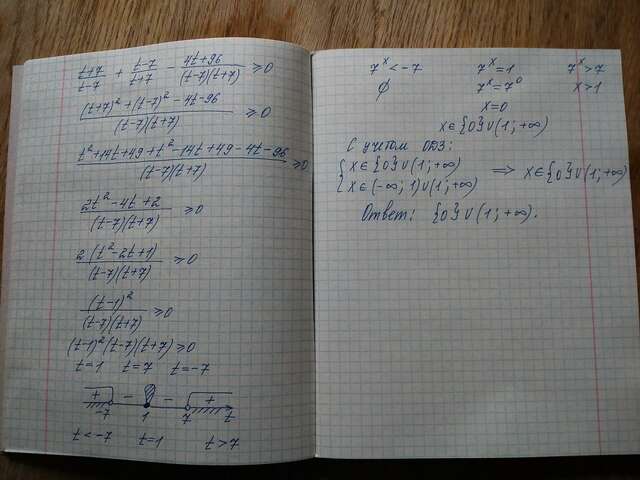 (t+7)/(t-7) + (t-7)/(t+7) - (4t+96)/((t-7)(t+7)) ≥ 0
((t+7)² + (t-7)² - 4t - 96)/((t-7)(t+7)) ≥ 0
(t² + 14t + 49 + t² - 14t + 49 - 4t - 96)/((t-7)(t+7)) ≥ 0
(2t² - 4t + 2)/((t-7)(t+7)) ≥ 0
2(t² - 2t + 1)/((t-7)(t+7)) ≥ 0
(t-1)²/((t-7)(t+7)) ≥ 0
(t-1)²(t-7)(t+7) ≥ 0
t=1 t=7 t=-7
+ - - +
-7 1 7 t
t < -7 t=1 t > 7
7^x < -7 7^x = 1 7^x > 7
∅ 7^x = 7^0 x > 1
x=0
x∈{0}∪(1; +∞)
С учетом ОДЗ:
{ x∈{0}∪(1; +∞)
x∈(-∞; 1)∪(1; +∞) ⇒ x∈{0}∪(1; +∞)
Ответ: {0}∪(1; +∞).